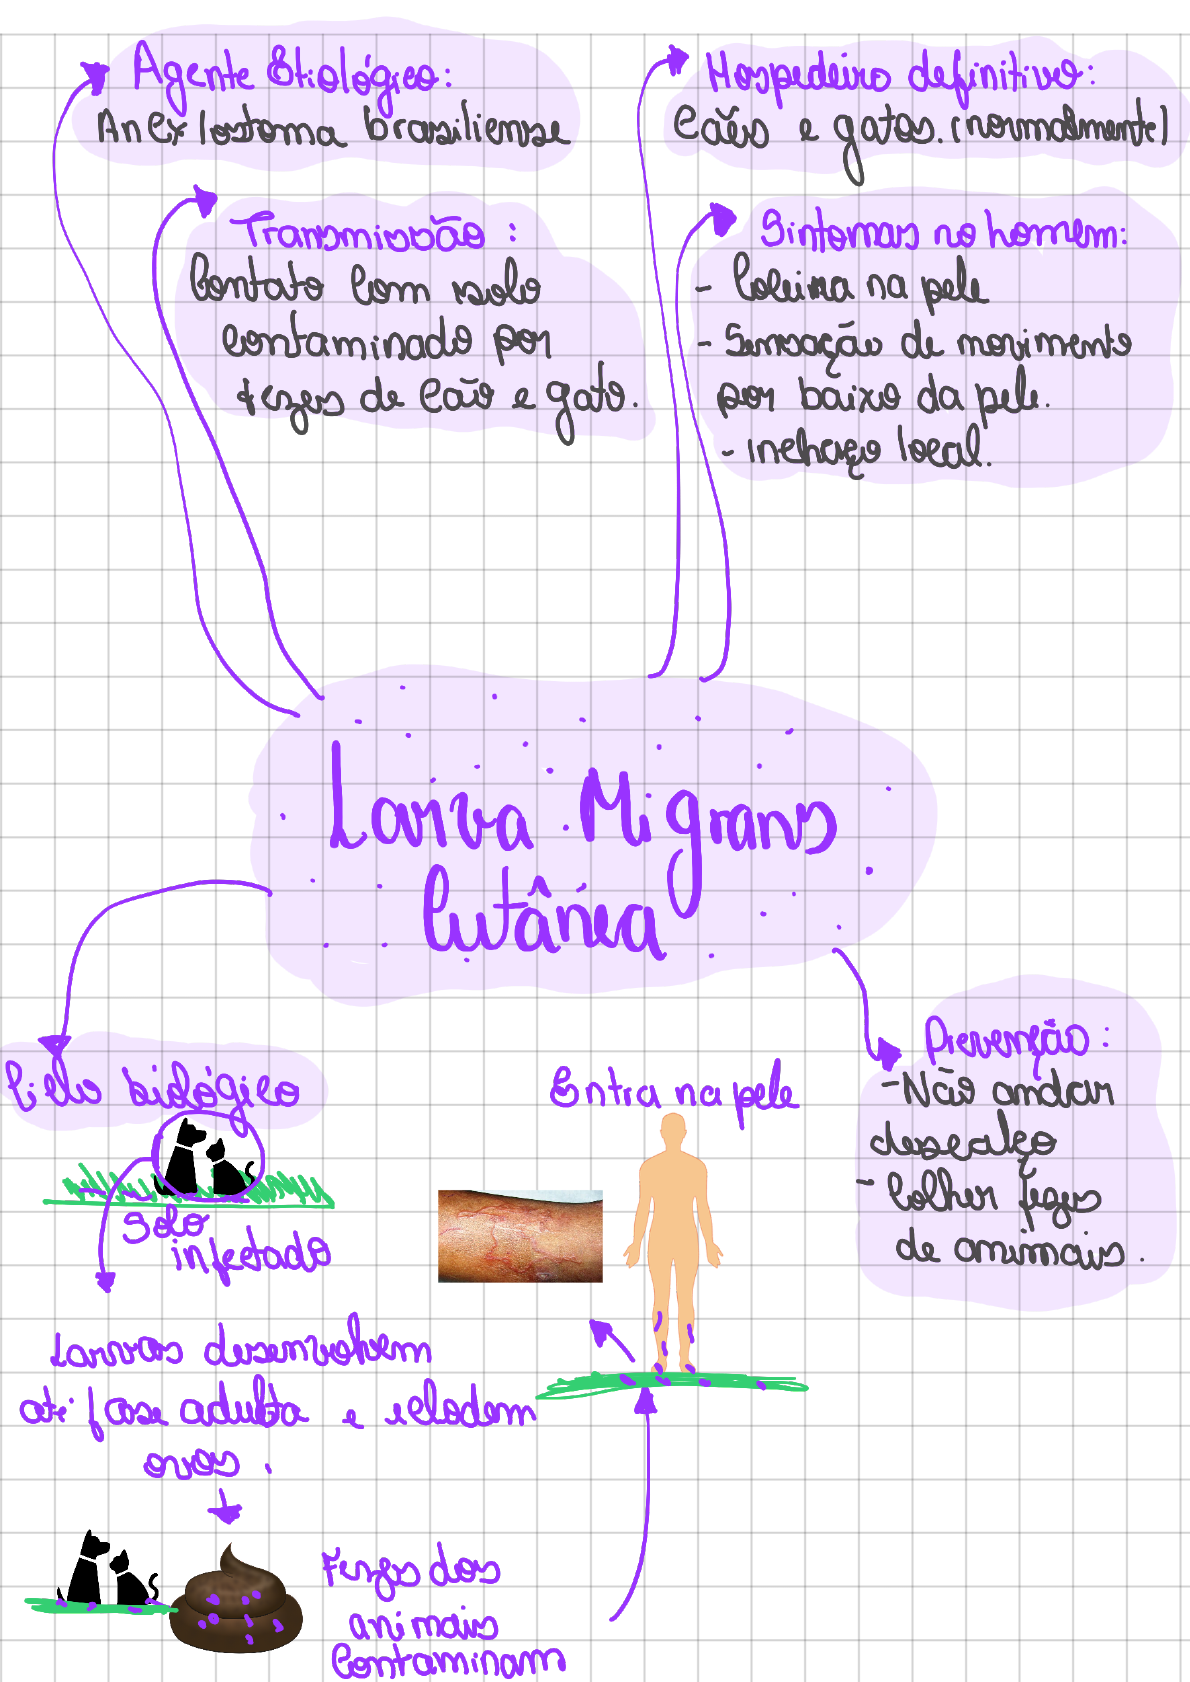 Agente Etiológico:
Ancylostoma brasiliense
Transmissão:
Contato com solo
contaminado por
fezes de cão e gato.
Hospedeiro definitivo:
Cães e gatos. (normalmente)
Sintomas no homem:
- Coceira na pele
- Sensação de movimento
por baixo da pele.
- inchaço local.
Larva Migrans
Cutânea
Ciclo biológico
Solo
infectado
Larvas desenvolvem
até fase adulta e eclodem
ovos.
Fezes dos
animais
Contaminam
Entra na pele
Prevenção:
- Não andar
descalço
- Colher fezes
de animais.